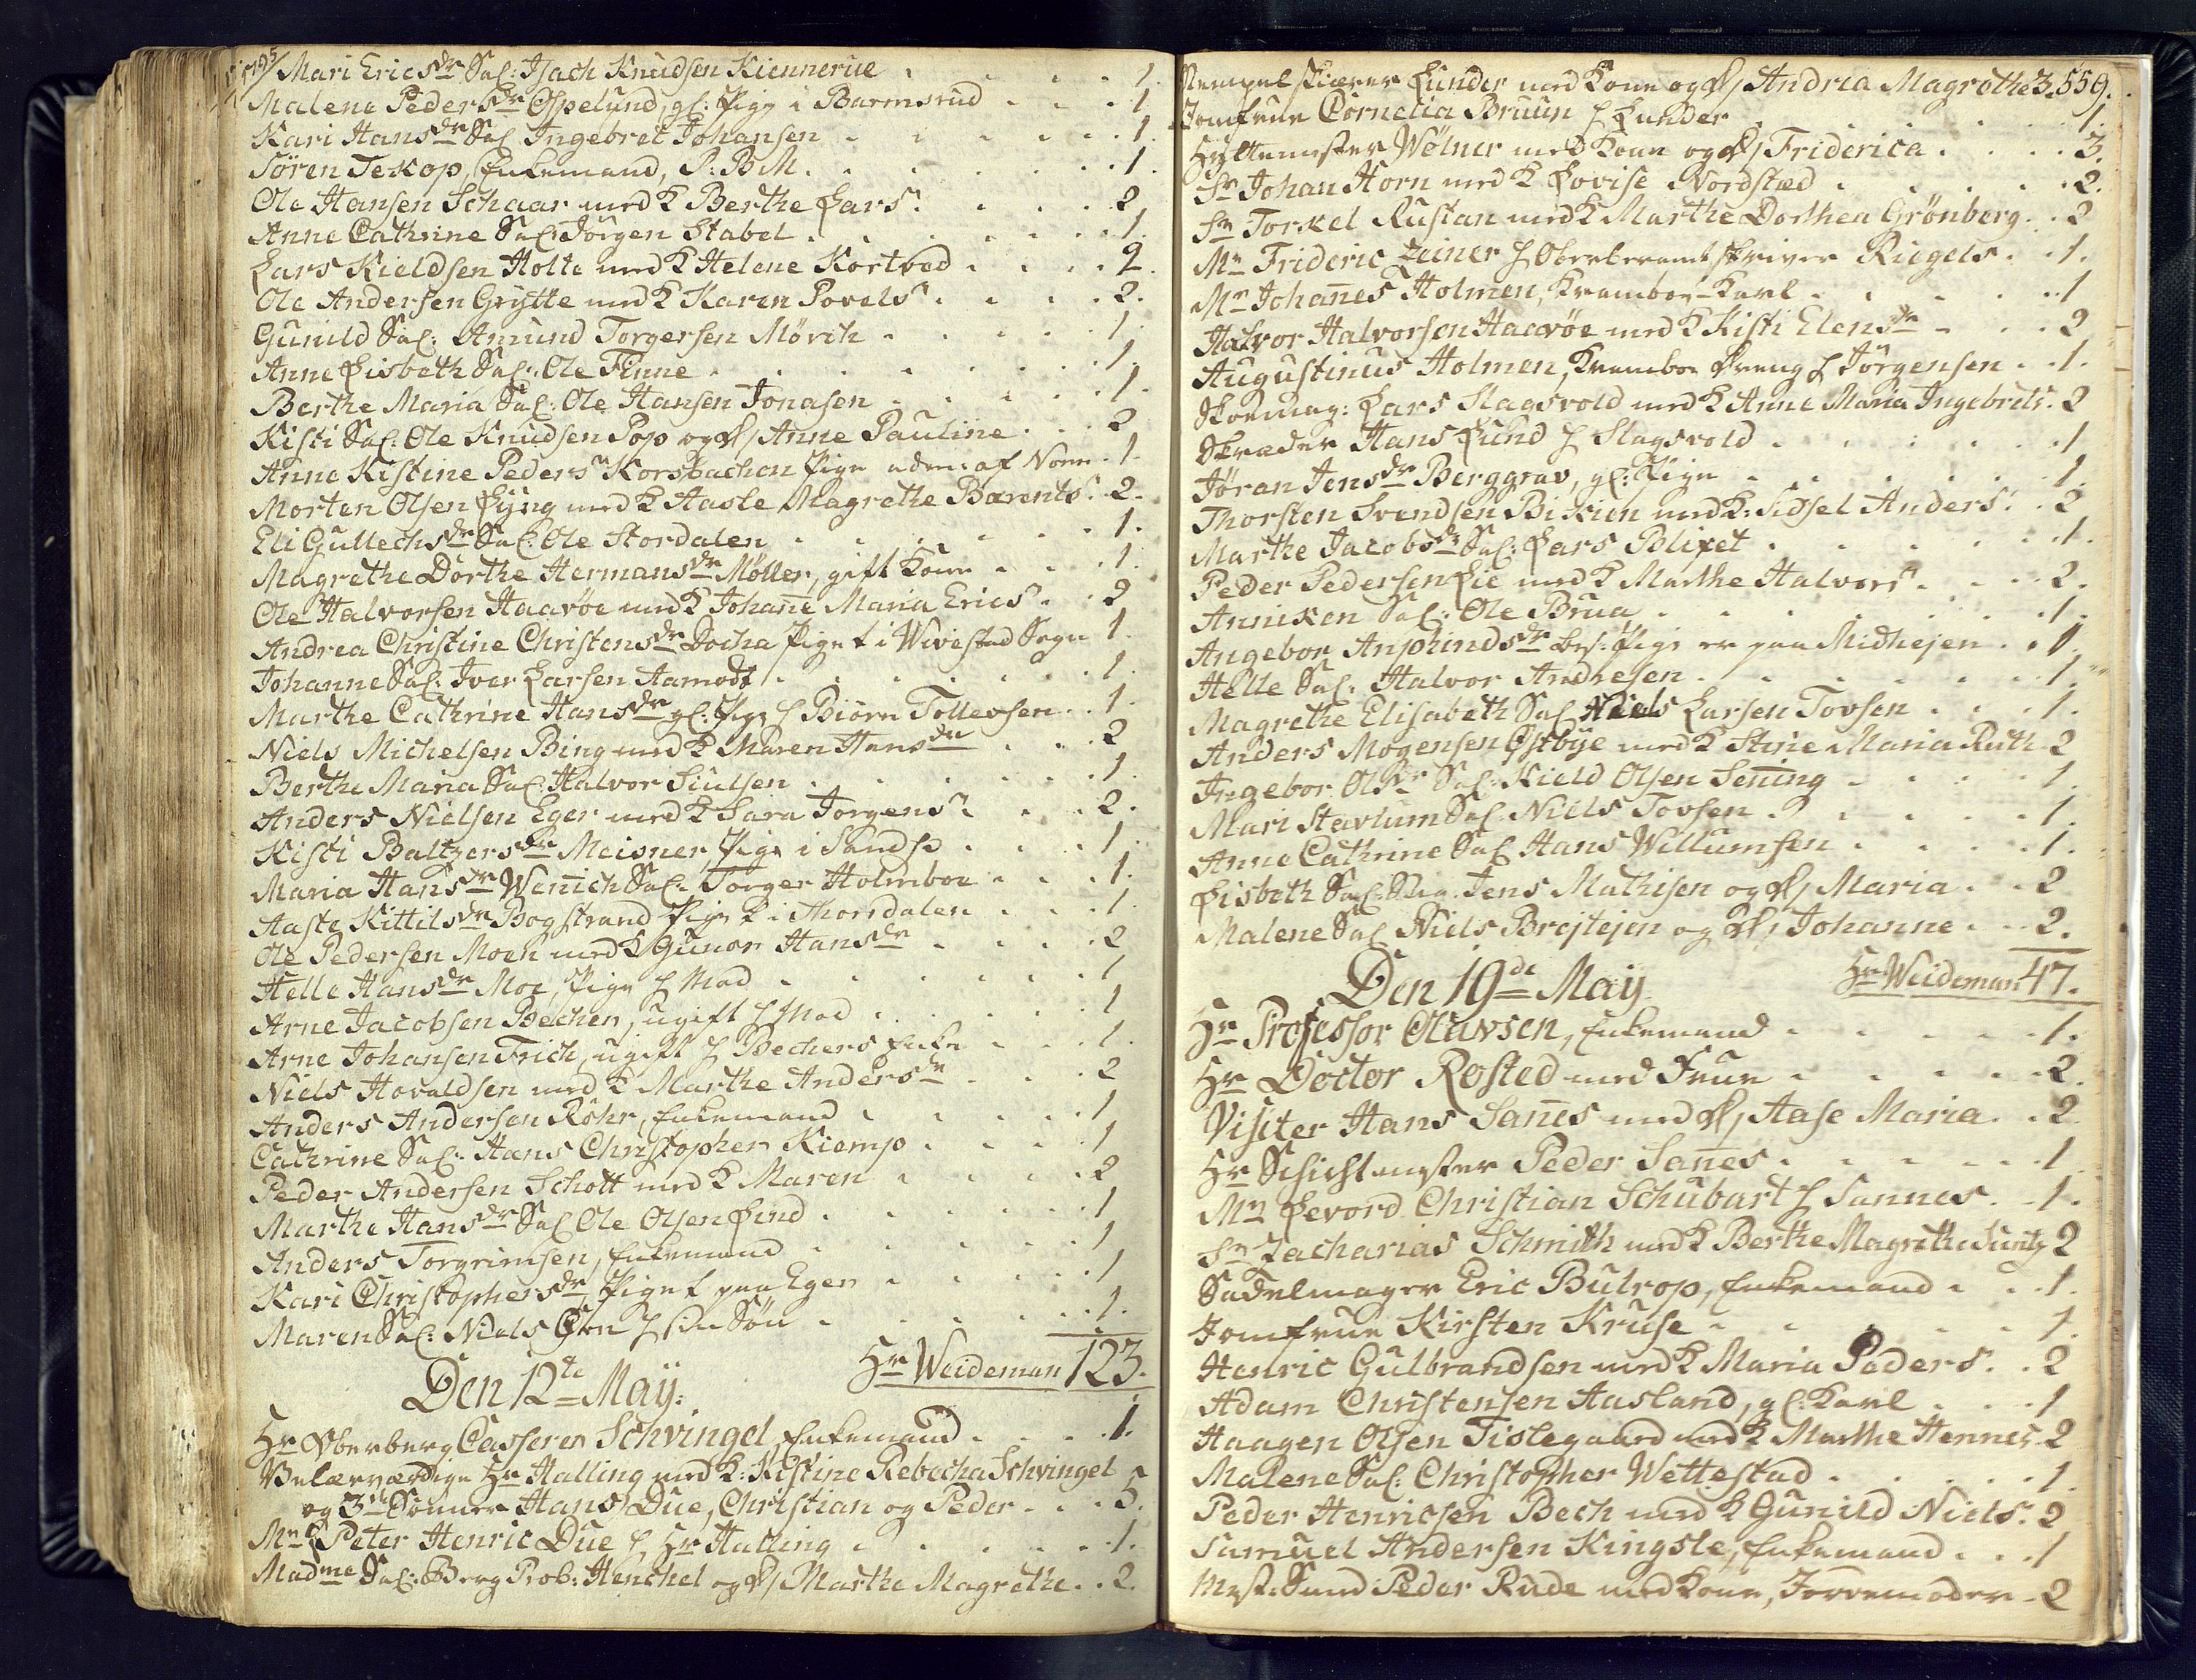 1795/ Mari Ericsdr Sal: Isach Knudsen Kiennerue . . . . 1.
Malene Pedersdr Ospelund, gl: Pige i Barmsrud . . . 1.
Kari Hansdr Sal Ingebret Johansen . . . . . 1.
Sören Tekop, Enkemand, P: B M. . . . . . 1.
Ole Hansen Schaar med K Berthe Lars: . . . . 2
Anne Cathrine Sal: Jörgen Stabel . . . . . . 1.
Lars Kieldsen Holte med K Helene Kortvod . . . . 2.
Ole Andersen Grytte med K Karen Povels: . . . . 2.
Gunild Sal: Amund Torgersen Mörch . . . . . 1.
Anne Lisbeth Sal: Ole Finne . . . . . . . 1.
Berthe Maria Sal: Ole Hansen Jonasen . . . . . 1.
Kisti Sal: Ole Knudsen Pop og D/ Anne Pauline . . . 2
Anne Kistine Peders: Korsbachen Pige uden: af Norn . 1.
Morten Olsen Lÿng med K Aasle Magrethe Barents: . 2.
Eli Gullechsdr Sal: Ole Stordalen . . . . . . 1.
Magrethe Dorthe Hermansdr Möller, gift Kone . . . 1.
Ole Halvorsen Haavöe med K Johañe Maria Erics: . . 2
Andrea Christine Christensdr Docka Pige t i Wivestad Sogn 1.
Johanne Sal: Iver Larsen Aamodt . . . . . . 1.
Marthe Cathrine Hansdr gl: Pige h Biörn Tollevsen . . 1.
Niels Michelsen Bing med K Maren Hansdr . . . 2
Berthe Maria Sal: Halvor Siulsen . . . . . . 1.
Anders Nielsen Eger med K Sara Jorgens: . . . . 2.
Kisti Baltzersdr Meisner, Pige i Sandsv . . . . 1.
Maria Hansdr Weñich Sal: Torger Holmboe . . . 1.
Aaste Kittilsdr Bogstrand Pige t i Thorsdalen . . . 1.
Ole Pedersen Moen med K Gunor Hansdr . . . . 2
Helle Hansdr Moe, Pige h Mad . . . . . . 1
Arne Jacobsen Bechen, ugift h Mad . . . . . 1
Arne Johansen Frich, ugift h Bechers Enke . . . 1.
Niels Hovaldsen med K Marthe Andersdr . . . . 2
Anders Andersen Röhr, Enkemand . . . . . 1
Cathrine Sal: Hans Christopher Kiemp . . . . 1
Peder Andersen Schott med K Maren . . . . 2
Marthe Hansdr Sal Ole Olsen Lind . . . . . 1
Anders Torgrimsen, Enkemand . . . . . . 1
Kari Christophersdr, Pige t paa Eger . . . . . 1
Maren Sal: Niels h sin Sön . . . . . . 1.
Hr Weideman 123.
Den 12te Maÿ:
Hr Oberberg Casserer Schvingel, Enkemand . . . . 1.
Velærværdige Hr Halling med K: Kistine Rebecha Schvingel
og 3de Sönner Hans Due, Christian og Peder . . . 5.
Mr Peter Henric Due h Hr Halling . . . . . . 1.
Madme Sal: Berg Prob: Henchel og D/ Marthe Magrethe . . 2.
Stempelskierer Lunder med Kone og D/ Andrea Magrethe 3. 559.
Jomfrue Cornelia Bruun h Lunder . . . . . . 1.
Hÿttemester Wölner med Kone og D/ Friderica . . . . 3.
Sr Johan Horn med K Lovise Nordsted . . . . . 2.
Sr Torkel Rustan med K Marthe Dorthea Grönberg . . 2
Mr Frideric Zeiner h Oberbergamtskriver Riegels . . 1.
Mr Johañes Holmen, Kramboe-Karl . . . . . . 1
Halvor Halvorsen Haavöe med K Kisti Elensdr . . . 2
Augustinus Holmen, Kramboe Dreng h Jörgensen . . 1.
Skoemag: Lars Slagsvold med K Anne Maria Ingebrets: 2
Skræder Hans Lund h Slagsvold . . . . . . 1
Jöran Jensdr Berggrav, gl: Pige . . . . . . 1.
Thorsten Svendsen Bikien med K: Sidsel Anders: . . 2
Marthe Jacobsdr Sal: Lars Blixet . . . . . . 1.
Peder Pedersen Lie med K Marthe Halvors: . . . . 2.
Anniken Sal: Ole Brua . . . . . . . . 1.
Angebor Anphindsdr bes: Pige er paa Midhejen . . 1.
Helle Sal: Halvor Andresen . . . . . . . 1.
Magrethe Elisabeth Sal Niels Larsen Tovsen . . . 1.
Anders Mogensen Östbÿe med K Stine Maria Ruth 2
Ingebor Olsdr Sal: Kield Olsen Señing . . . . 1.
Mari Stavlum Sal Niels Tovsen . . . . . . 1.
Anne Cathrine Sal Hans Willumsen . . . . . 1.
Lisbeth Sal: Stig. Jens Mathisen og D/ Maria . . . 2
Malene Sal Niels Brejtejen og D/ Johanne . . . 2.
Hr Weideman 47.
Den 19de Maÿ
Hr Professor Olavsen, Enkemand . . . . . 1.
Hr Doctor Rosted med Frue . . . . . . 2.
Visiter Hans Sañes med D/ Aase Maria . . 2
Hr Schichtmester Peder Sañes . . . . . . 1
Mr Levord Christian Schubart h Sannes . . 1.
Sr Zacharias Schmith med K Berthe Magrethe Suntz 2
Sadelmager Eric Butrop, Enkemand . . . 1.
Jomfrue Kirsten Kruse . . . . . . . 1.
Henric Gulbrandsen med K Maria Peders: . . 2
Adam Christensen Aasland, gl: Karl . . . . 1
Haagen Olsen Tislegaard med K Marthe Hennes: 2
Malene Sal: Christopher Wettestad . . . . . 1
Peder Henricsen Bech med K Gunild Niels: 2
Samuel Andersen Kingsle, Enkemand . . . 1
Myst: Svend Peder Rude med Kone, Jordemoder - 2